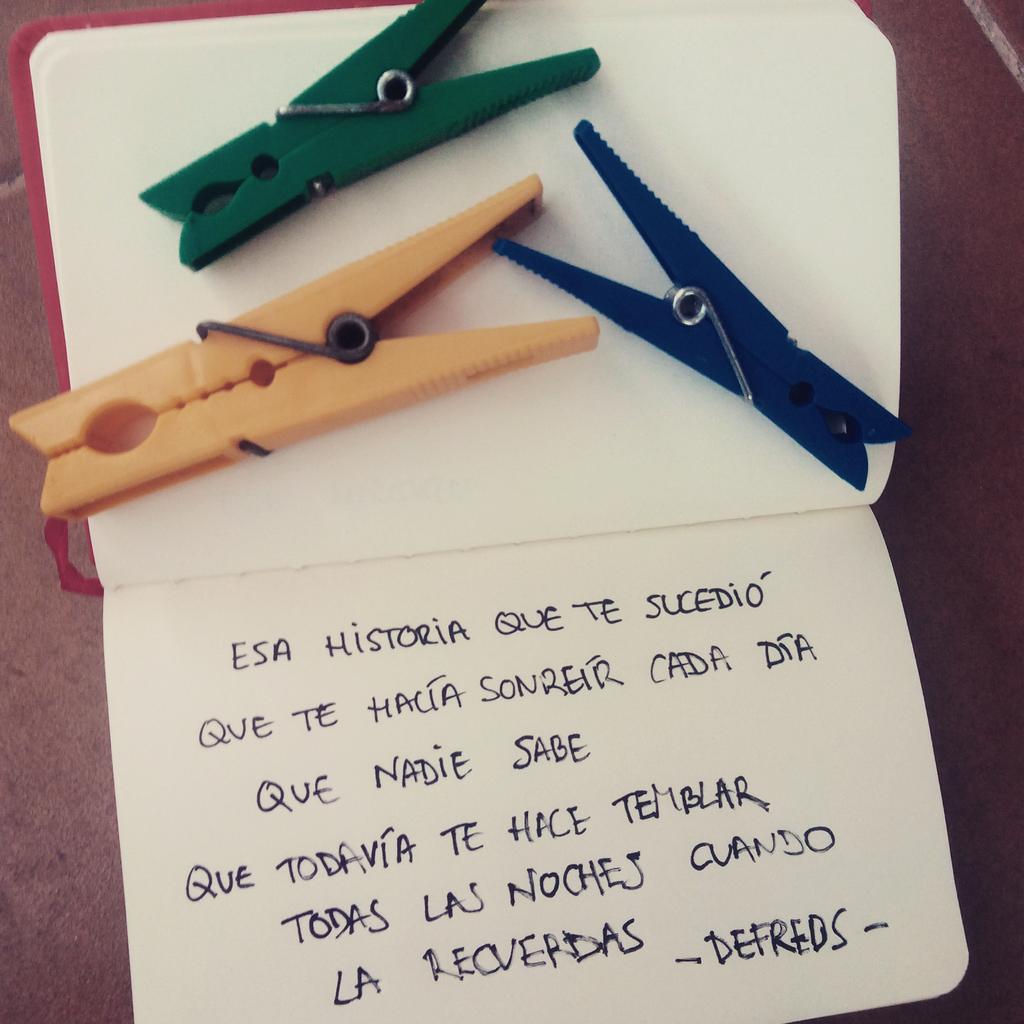 ESA HISTORIA QUE TE SUCEDIÓ
QUE TE HACÍA SONREÍR CADA DÍA
QUE NADIE SABE
QUE TODAVÍA TE HACE TEMBLAR
TODAS LAS NOCHES CUANDO
LA RECUERDAS -DEFREDS-